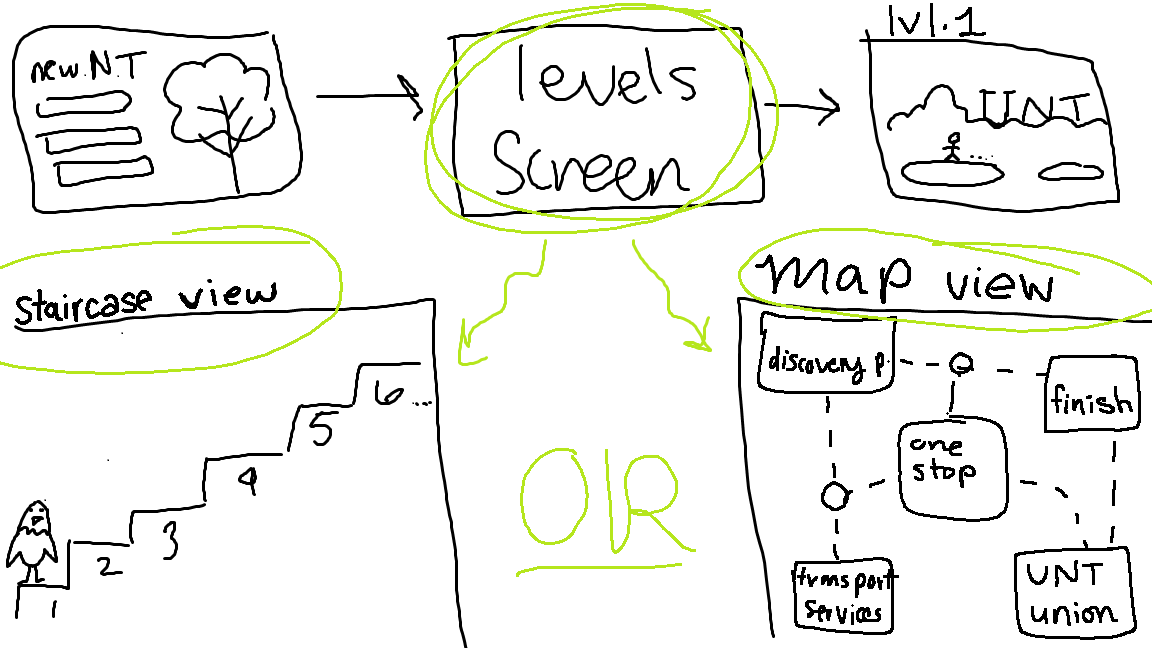 new.N.T
levels
screen
lvl.1
UNT
staircase view
1
2
3
4
5
6...
OR
map view
discovery p.
finish
one
stop
transport
services
UNT
union